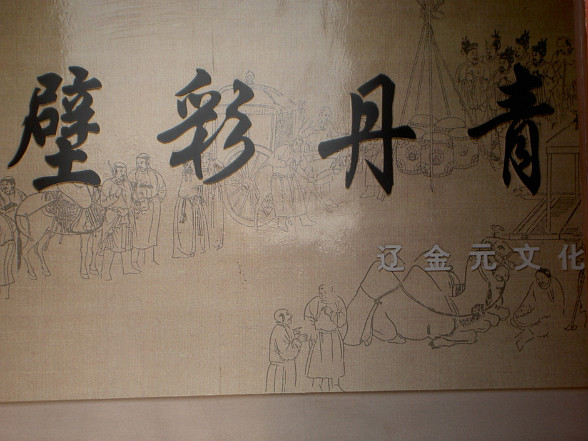 壁彩丹青
辽金元文化